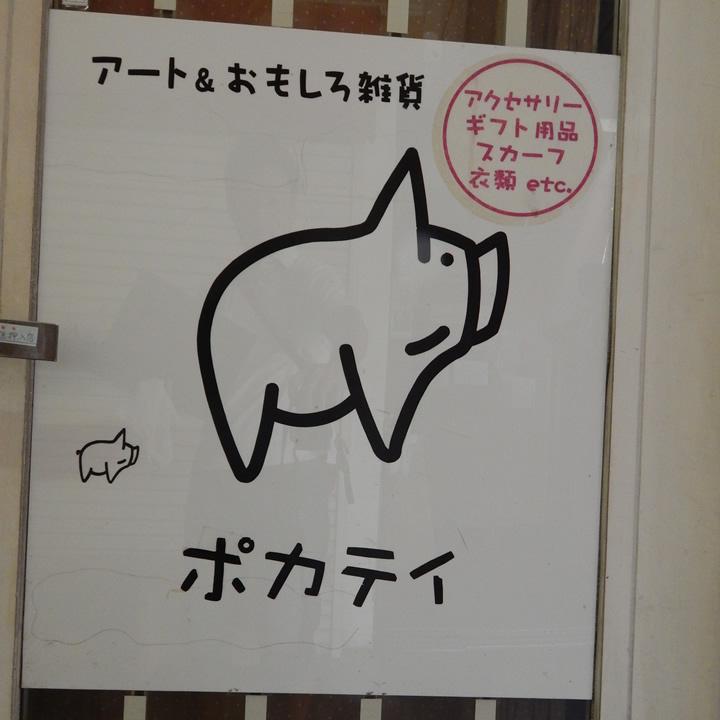 アート&おもしろ雑貨
アクセサリー
ギフト用品
スカーフ
衣類 etc.
ポカティ